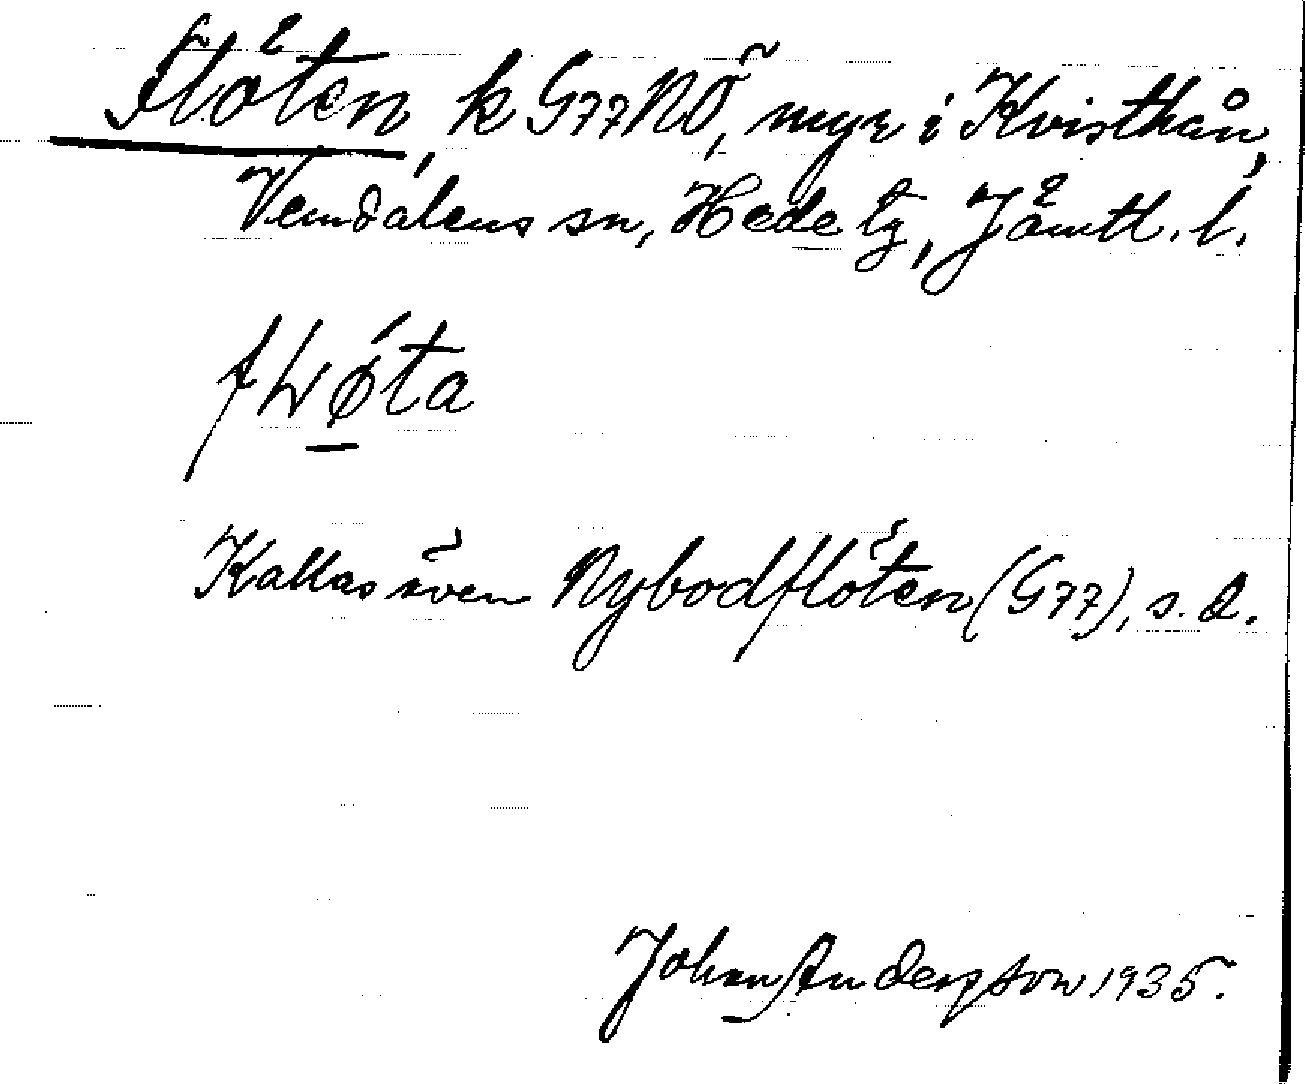 Flöten, k G77NÖ, myr i Kvisthån,
Vemdalens sn, Hede tg, Jämtl. l.
fLǿta
Kallas även Nybodflöten (G77), s. d.
Johan Andersson 1935.